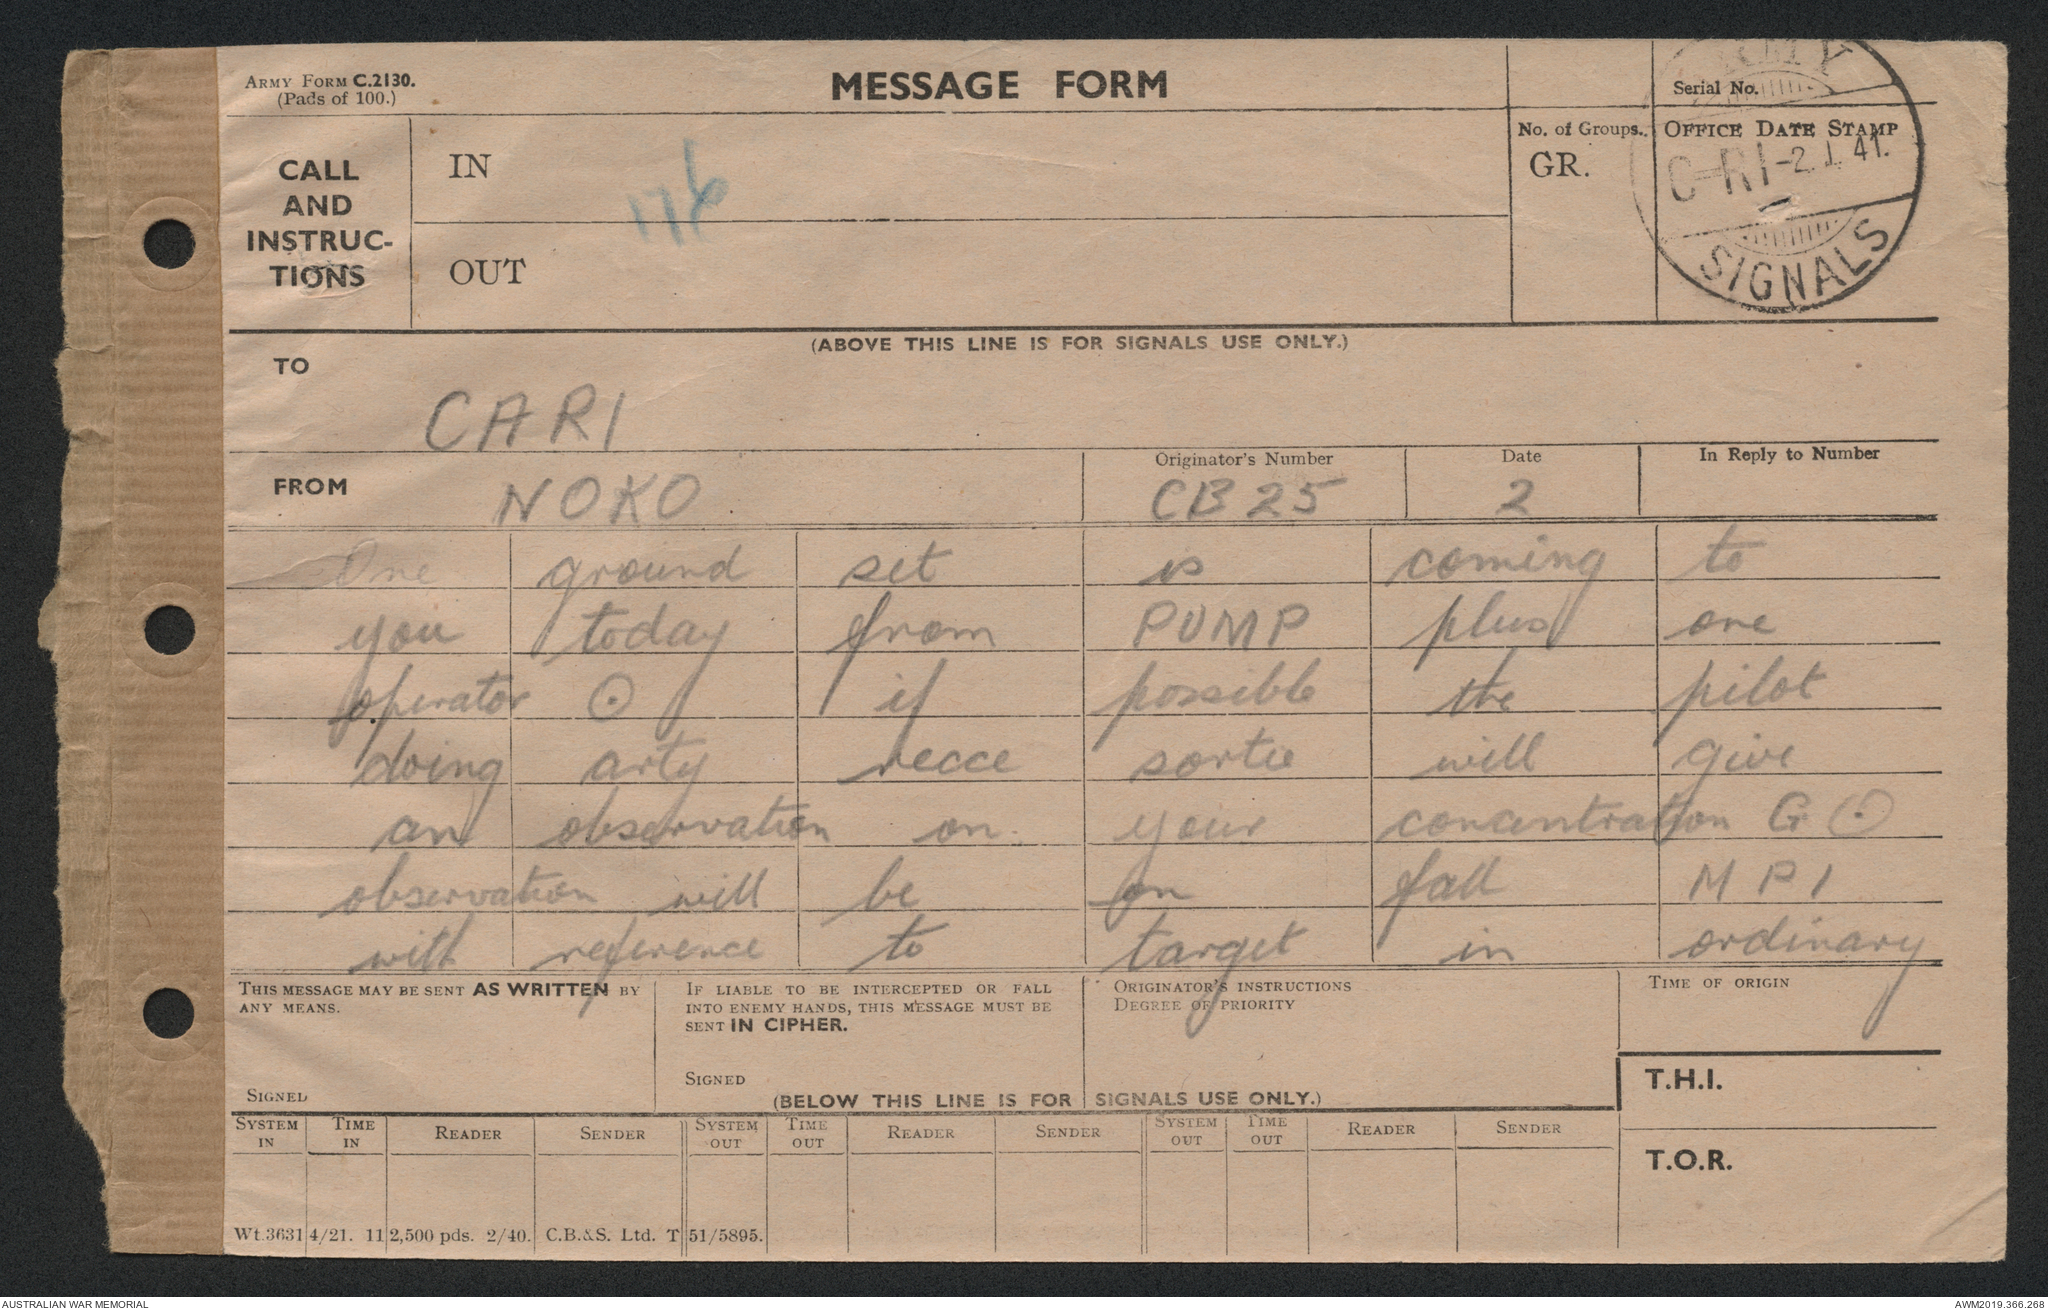 ARMY FORM C.2130.
(Pads of 100.)
MESSAGE FORM
Serial No.
CALL
AND
INSTRUC-
TIONS
IN
176
OUT
No. of Groups.
GR.
OFFICE DATE STAMP
ARMY
C-RI -2 1 41.
SIGNALS
(ABOVE THIS LINE IS FOR SIGNALS USE ONLY.)
TO
CARI
FROM
NOKO
Originator's Number
CB25
Date
2
In Reply to Number
One ground set is coming to
you today from PUMP plus one
operator ⊙ if possible the pilot
doing arty recce sortie will give
an observation on your concentration G ⊙
observation will be on fall MPI
with reference to target in ordinary
THIS MESSAGE MAY BE SENT AS WRITTEN BY
ANY MEANS.
SIGNED
IF LIABLE TO BE INTERCEPTED OR FALL
INTO ENEMY HANDS, THIS MESSAGE MUST BE
SENT IN CIPHER.
SIGNED
ORIGINATOR'S INSTRUCTIONS
DEGREE OF PRIORITY
TIME OF ORIGIN
(BELOW THIS LINE IS FOR SIGNALS USE ONLY.)
T.H.I.
T.O.R.
SYSTEM IN TIME IN READER SENDER SYSTEM OUT TIME OUT READER SENDER SYSTEM OUT TIME OUT READER SENDER
Wt.36314/21. 112,500 pds. 2/40. C.B.&S. Ltd. T 51/5895.
AUSTRALIAN WAR MEMORIAL
AWM2019.366.268